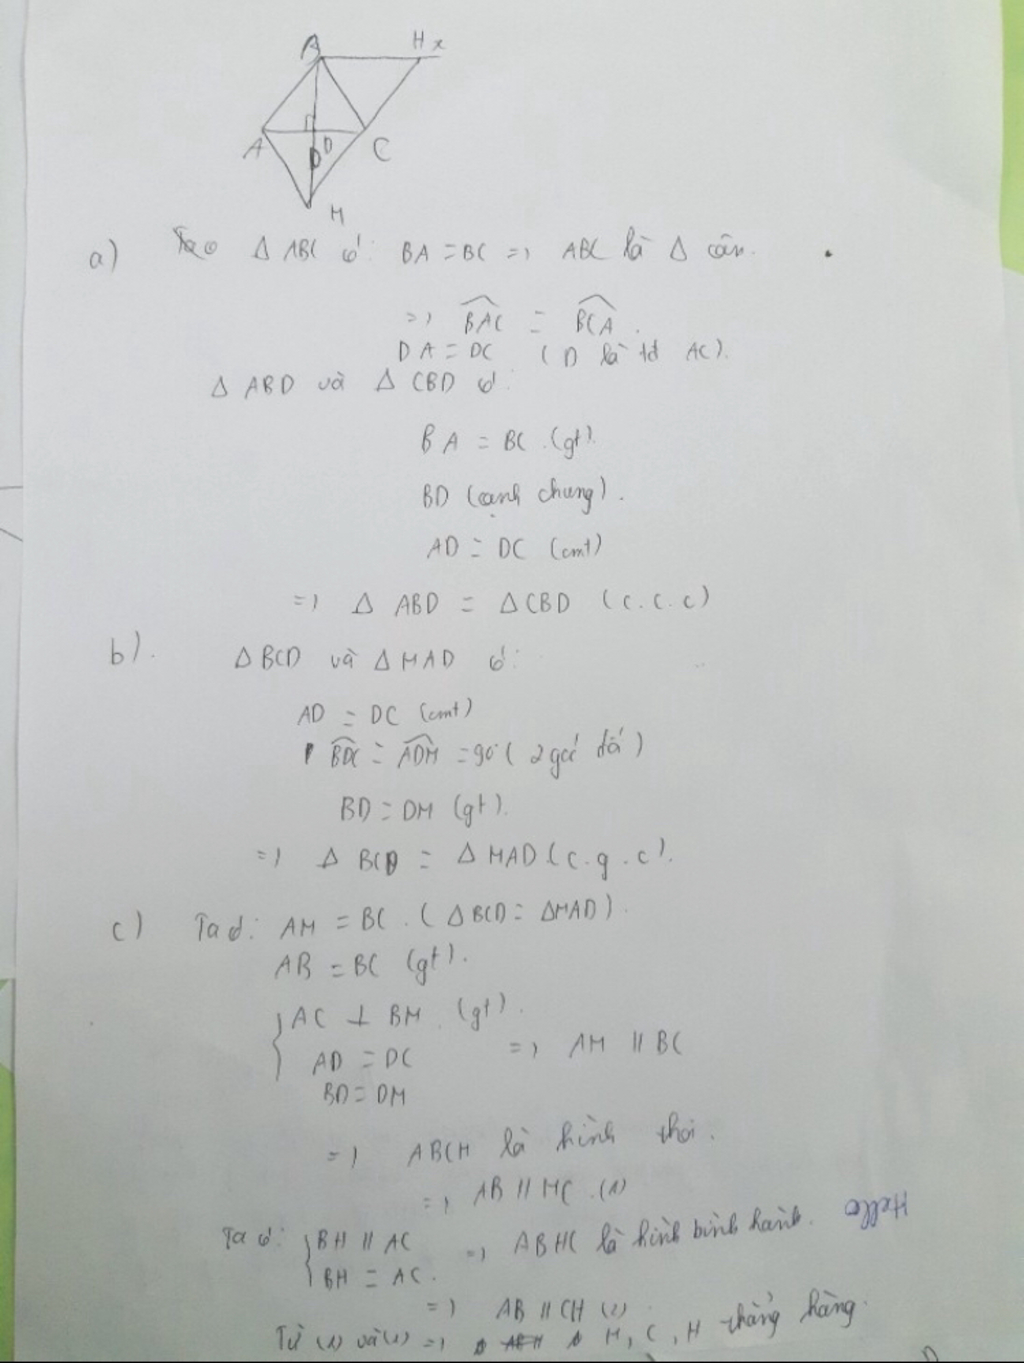 B
H x
A
D
C
M
a) Δ ABC có: BA = BC => ABC là Δ cân.
=> BAC = BCA.
DA = DC (D là tđ AC).
Δ ABD và Δ CBD có:
BA = BC (gt).
BD (cạnh chung).
AD = DC (cmt)
=> Δ ABD = Δ CBD (c.c.c)
b). Δ BCD và Δ MAD có:
AD = DC (cmt)
BDC = ADM = 90° (2 góc đđ)
BD = DM (gt).
=> Δ BCD = Δ MAD (c.g.c).
c) Ta có: AM = BC. (Δ BCD = Δ MAD).
AB = BC (gt).
AC ⊥ BM (gt).
AD = DC => AM // BC
BD = DM
=> ABCM là hình thoi.
=> AB // MC (1)
Ta có: BH // AC => ABHC là hình bình hành. Hello
BH = AC.
=> AB // CH (2)
Từ (1) và (2) => M, C, H thẳng hàng.